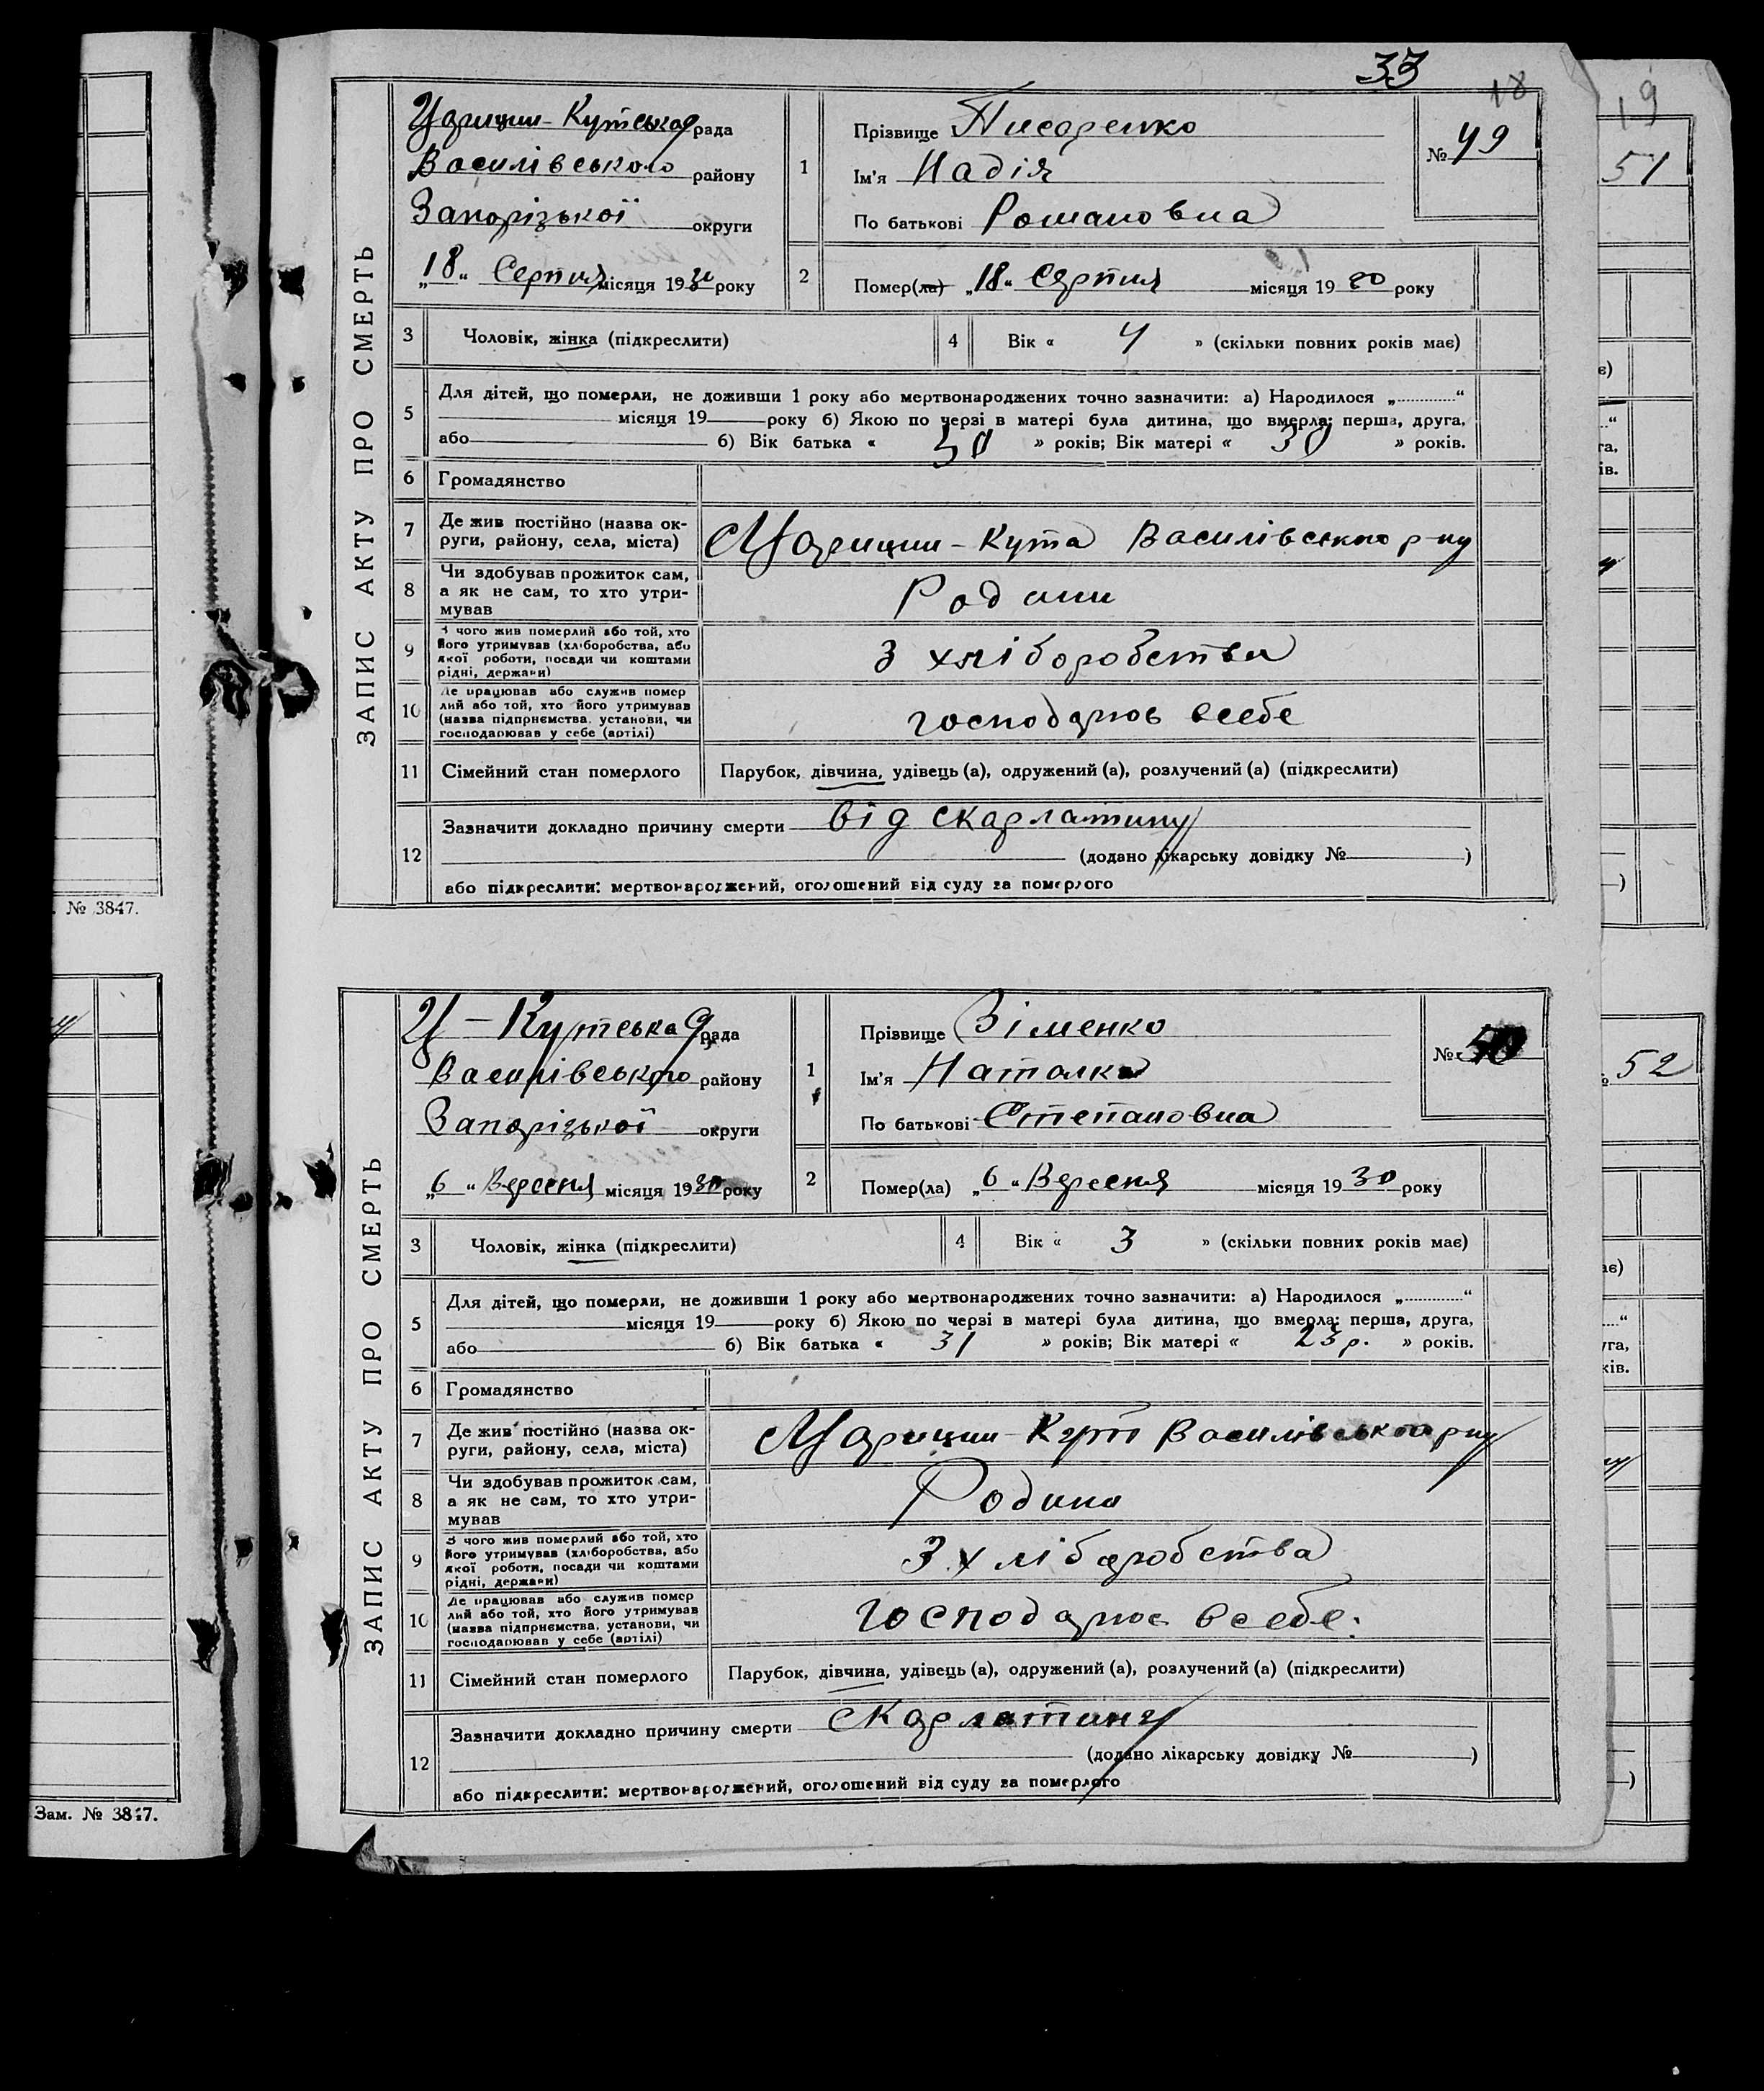 33
18
19
ЗАПИС АКТУ ПРО СМЕРТЬ
Царицин-Кутська рада
Василівського району
Запорізької округи
„18“ Серпня місяця 1930 року
1
Прізвище Писаренко
Ім'я Надія
По батькові Романовна
№ 49
51
2
Помер(ла) „18“ Серпня місяця 1930 року
3
Чоловік, жінка (підкреслити)
4
Вік « 4 » (скільки повних років має)
5
Для дітей, що померли, не доживши 1 року або мертвонароджених точно зазначити: а) Народилося „.............“
місяця 19 року б) Якою по черзі в матері була дитина, що вмерла: перша, друга,
або б) Вік батька « 30 » років; Вік матері « 30 » років.
6
Громадянство
7
Де жив постійно (назва ок-
руги, району, села, міста)
Царицин-Кута Василівського р-ну
8
Чи здобував прожиток сам,
а як не сам, то хто утри-
мував
Родини
9
З чого жив померлий або той, хто
його утримував (хліборобства, або
якої роботи, посади чи коштами
рідні, держави)
З хліборобства
10
Де працював або служив помер
лий або той, хто його утримував
(назва підприємства, установи, чи
господарював у себе (артілі)
господарює всебе
11
Сімейний стан померлого
Парубок, дівчина, удівець (а), одружений (а), розлучений (а) (підкреслити)
12
Зазначити докладно причину смерти від скарлатини
(додано лікарську довідку № )
або підкреслити: мертвонароджений, оголошений від суду за померлого
№ 3847.
ЗАПИС АКТУ ПРО СМЕРТЬ
Ц-Кутська рада
Василівського району
Запорізької округи
„6“ Вересня місяця 1930 року
1
Прізвище Зіменко
Ім'я Наталка
По батькові Степановна
№ 50
52
2
Помер(ла) „6“ Вересня місяця 1930 року
3
Чоловік, жінка (підкреслити)
4
Вік « 3 » (скільки повних років має)
5
Для дітей, що померли, не доживши 1 року або мертвонароджених точно зазначити: а) Народилося „.............“
місяця 19 року б) Якою по черзі в матері була дитина, що вмерла: перша, друга,
або б) Вік батька « 31 » років; Вік матері « 23 р. » років.
6
Громадянство
7
Де жив постійно (назва ок-
руги, району, села, міста)
Царицин-Кут Василівського р-ну
8
Чи здобував прожиток сам,
а як не сам, то хто утри-
мував
Родина
9
З чого жив померлий або той, хто
його утримував (хліборобства, або
якої роботи, посади чи коштами
рідні, держави)
З хліборобства
10
Де працював або служив помер
лий або той, хто його утримував
(назва підприємства, установи, чи
господарював у себе (артілі)
Господарює всебе.
11
Сімейний стан померлого
Парубок, дівчина, удівець (а), одружений (а), розлучений (а) (підкреслити)
12
Зазначити докладно причину смерти скарлатина
(додано лікарську довідку № )
або підкреслити: мертвонароджений, оголошений від суду за померлого
Зам. № 3847.